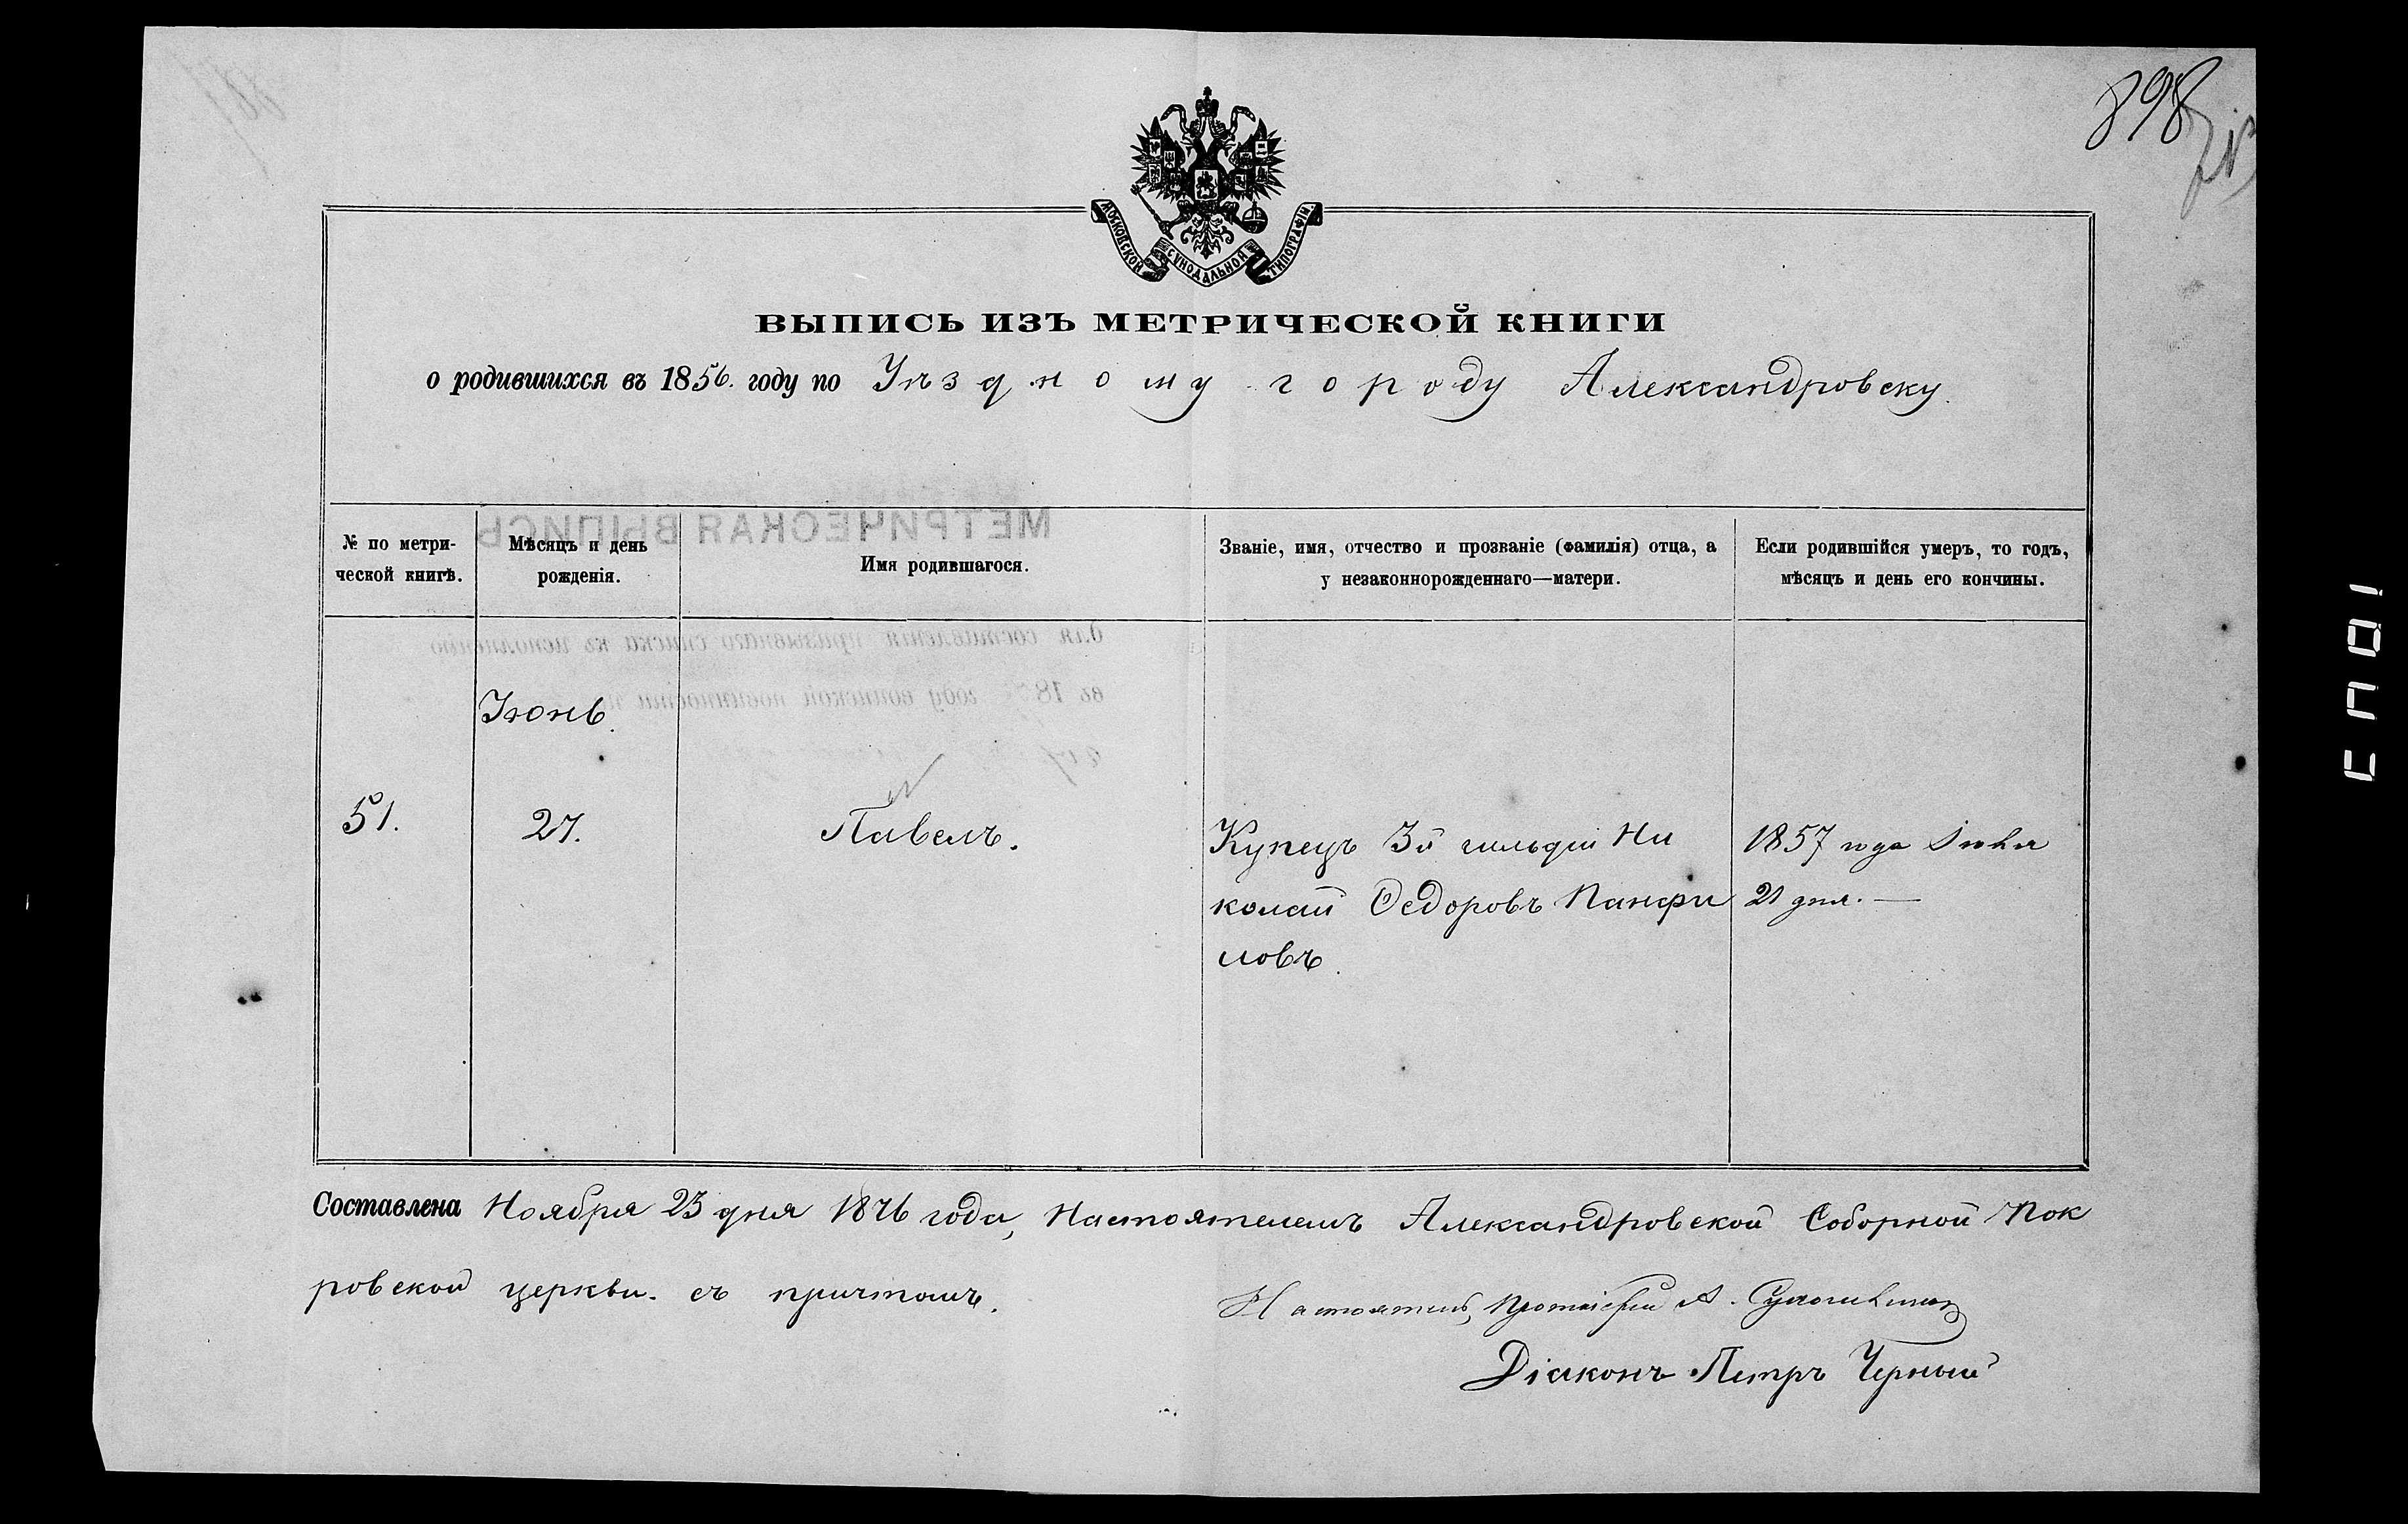 898
МОСКОВСКОЙ СУНОДАЛЬНОЙ ТИПОГРАФІИ
ВЫПИСЬ ИЗЪ МЕТРИЧЕСКОЙ КНИГИ
о родившихся въ 1856. году по Уѣздному городу Александровску.
МЕТРИЧЕСКАЯ ВЫПИСЬ
№ по метри-
ческой книгѣ.
Мѣсяцъ и день
рожденія.
Имя родившагося.
Званіе, имя, отчество и прозваніе (фамилія) отца, а
у незаконнорожденнаго—матери.
Если родившійся умеръ, то годъ,
мѣсяцъ и день его кончины.
для составленія призывнаго списка къ исполненію
въ 18 году воинской повинности
Іюнь.
51.
27.
Павелъ.
Купецъ 3й гильдіи Ни
колай Ѳедоровъ Панфи
ловъ.
1857 года
21 дня. —
Составлена Ноября 23 дня 1876 года, Настоятелемъ Александровской Соборной Пок
ровской церкви. съ причтомъ.
Настоятель, Протоіерей А.
Діаконъ Петръ Черный